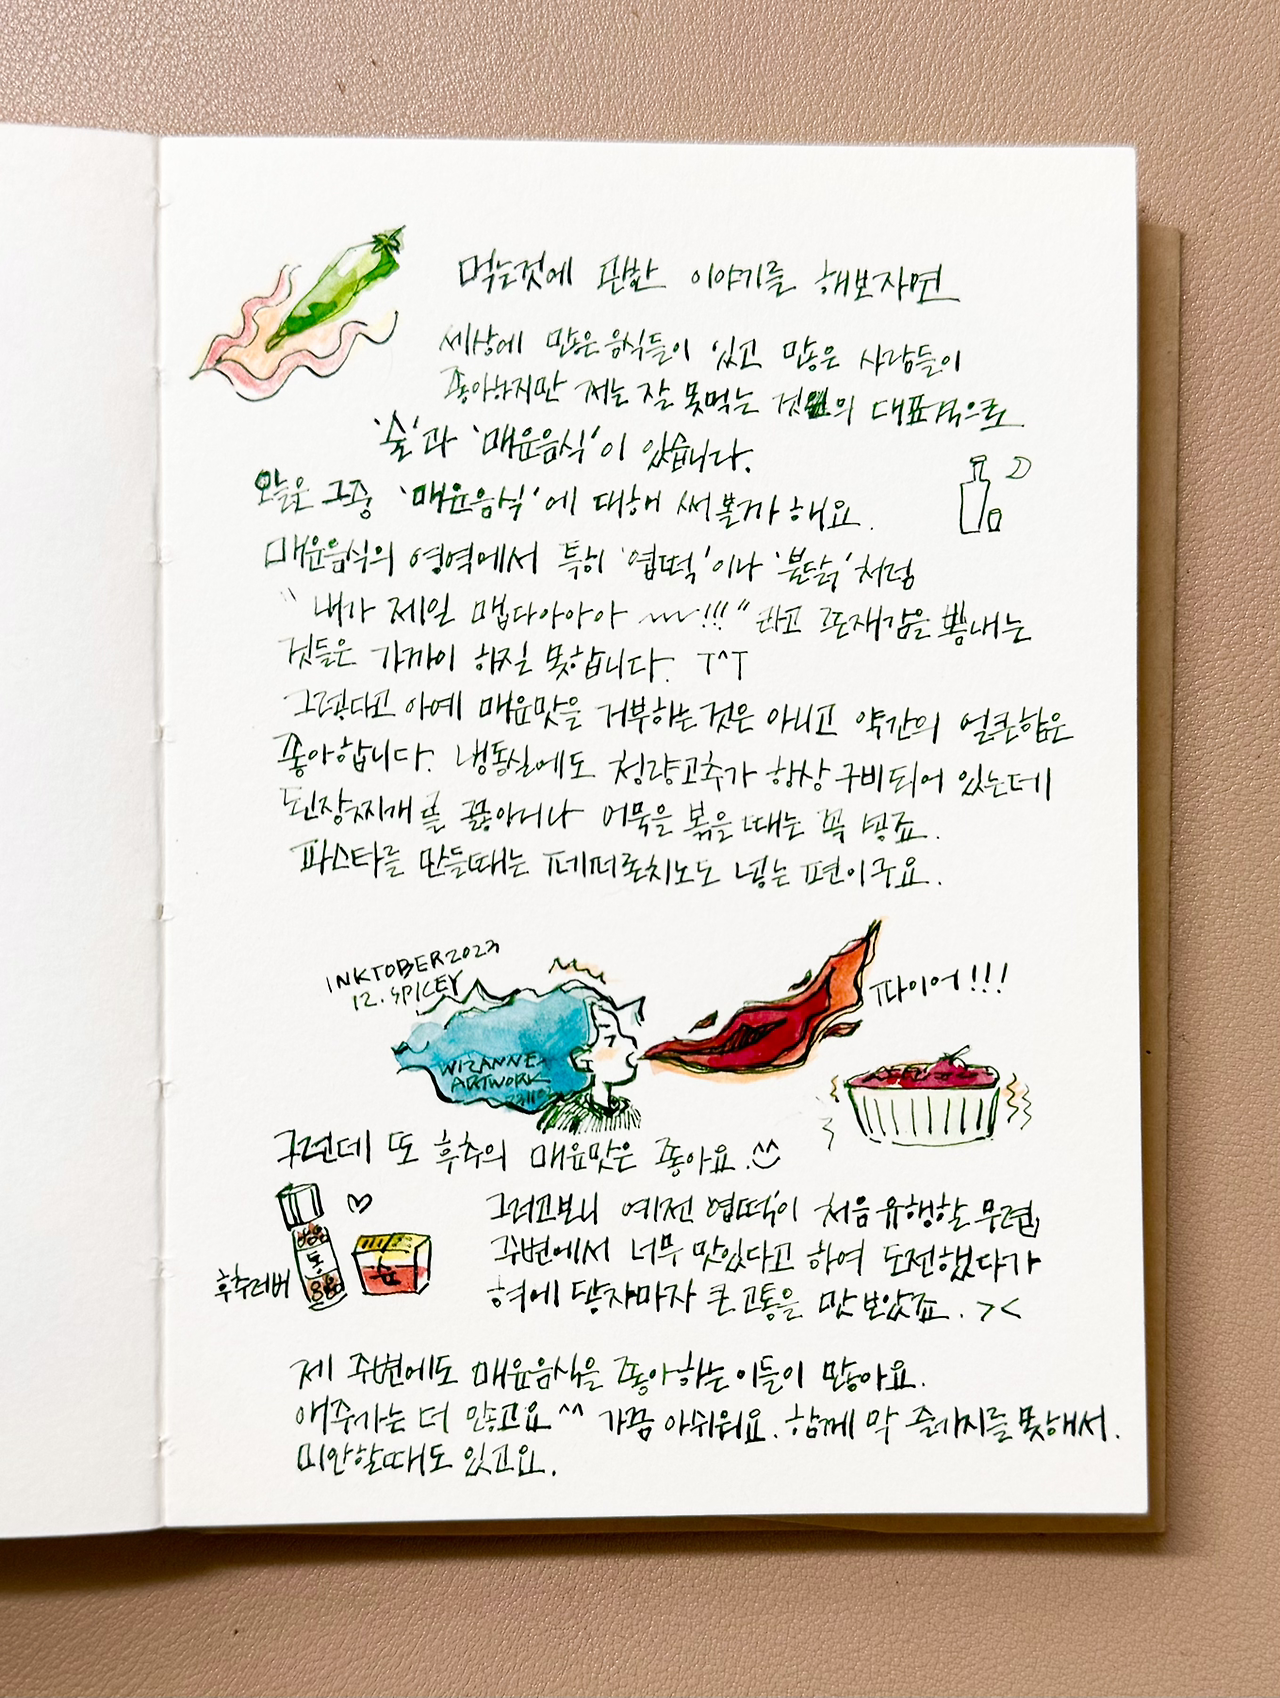 먹는것에 관한 이야기를 해보자면
세상에 많은 음식들이 있고 많은 사람들이
좋아하지만 저는 잘 못먹는 것의 대표적으로
'술'과 '매운음식'이 있습니다.
오늘은 그중 '매운음식'에 대해 써볼까 해요.
매운음식의 영역에서 특히 '엽떡'이나 '불닭'처럼
"내가 제일 맵다아아아 ~~!!!"라고 존재감을 뽐내는
것들은 가까이 하질 못합니다. T^T
그렇다고 아예 매운맛을 거부하는것은 아니고 약간의 얼큰함은
좋아합니다. 냉동실에도 청량고추가 항상 구비되어 있는데
된장찌개를 끓이거나 어묵을 볶을때는 꼭 넣죠.
파스타를 만들때는 페퍼로치노도 넣는 편이구요.
INKTOBER2023
12. SPICEY
파이어!!!
WIZANNE
ARTWORK
그런데 또 후추의 매운맛은 좋아요. ^^
그러고보니 예전 엽떡이 처음 유행할 무렵,
주변에서 너무 맛있다고 하여 도전했다가
혀에 닿자마자 큰 고통을 맛보았죠. ><
후추러버
통
순
제 주변에도 매운음식을 좋아하는 이들이 많아요.
애주가는 더 많고요 ^^ 가끔 아쉬워요. 함께 막 즐기지를 못해서.
미안할때도 있고요.